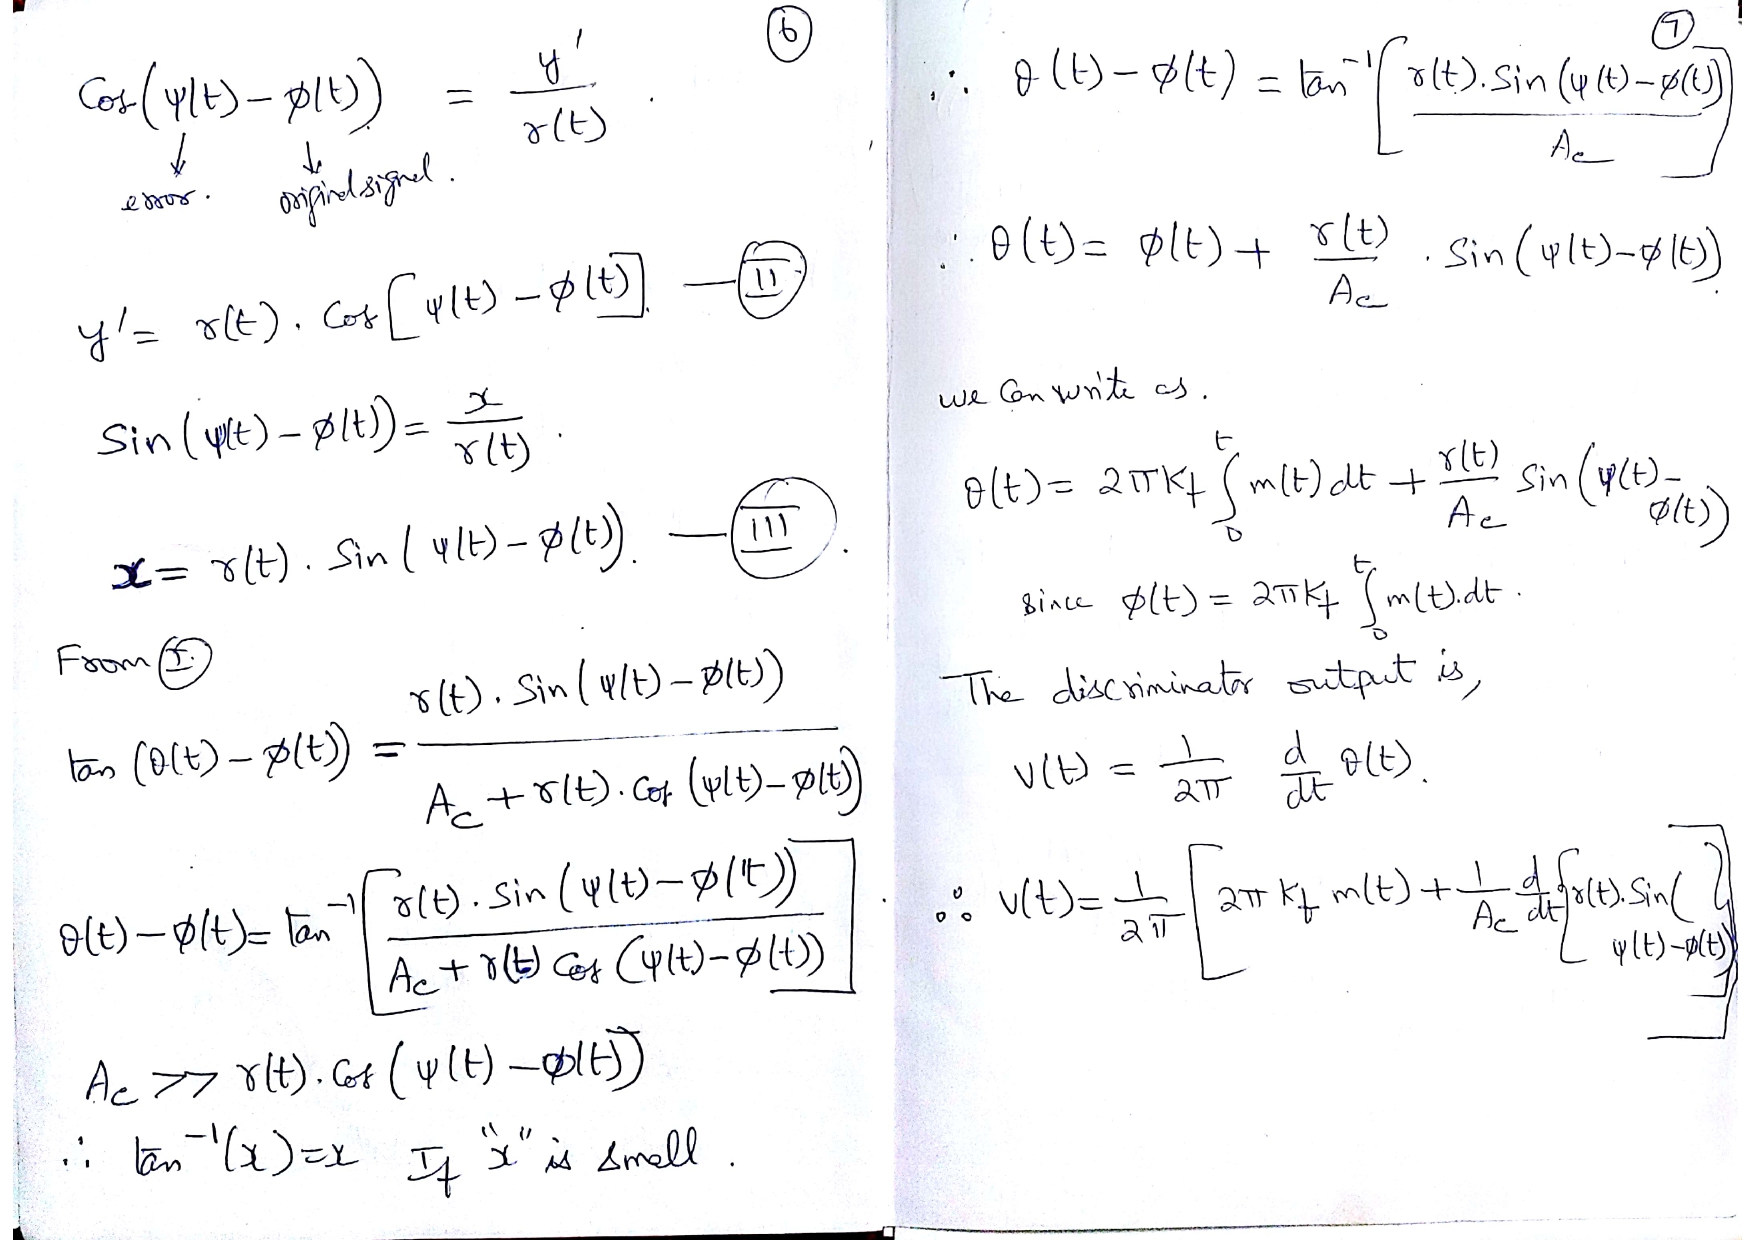 6
Cos(ψ(t) – φ(t)) = y' / r(t) .
↓ ↓
error. original signal.
y' = r(t) . Cos[ψ(t) – φ(t)]. — II
Sin(ψ(t) – φ(t)) = x / r(t) .
x = r(t) . Sin(ψ(t) – φ(t)). — III .
From I.
tan (θ(t) – φ(t)) = r(t) . Sin(ψ(t) – φ(t)) / Ac + r(t). Cos (ψ(t) – φ(t))
θ(t) – φ(t) = tan⁻¹[r(t) . Sin(ψ(t) – φ(t)) / Ac + r(t) Cos (ψ(t) – φ(t))] .
Ac >> r(t). Cos (ψ(t) – φ(t))
∴ tan⁻¹(x) = x If "x" is small .
7
∴ θ(t) – φ(t) = tan⁻¹[r(t). Sin (ψ(t) – φ(t)) / Ac]
∴ θ(t) = φ(t) + r(t) / Ac . Sin(ψ(t) – φ(t)).
we can write as .
θ(t) = 2πKf ∫₀ᵗ m(t) dt + r(t) / Ac Sin (ψ(t) –
φ(t))
since φ(t) = 2πKf ∫₀ᵗ m(t).dt .
The discriminator output is,
v(t) = 1 / 2π d / dt θ(t).
∴ v(t) = 1 / 2π [2π Kf m(t) + 1 / Ac d / dt {r(t). Sin(
ψ(t) – φ(t))}]